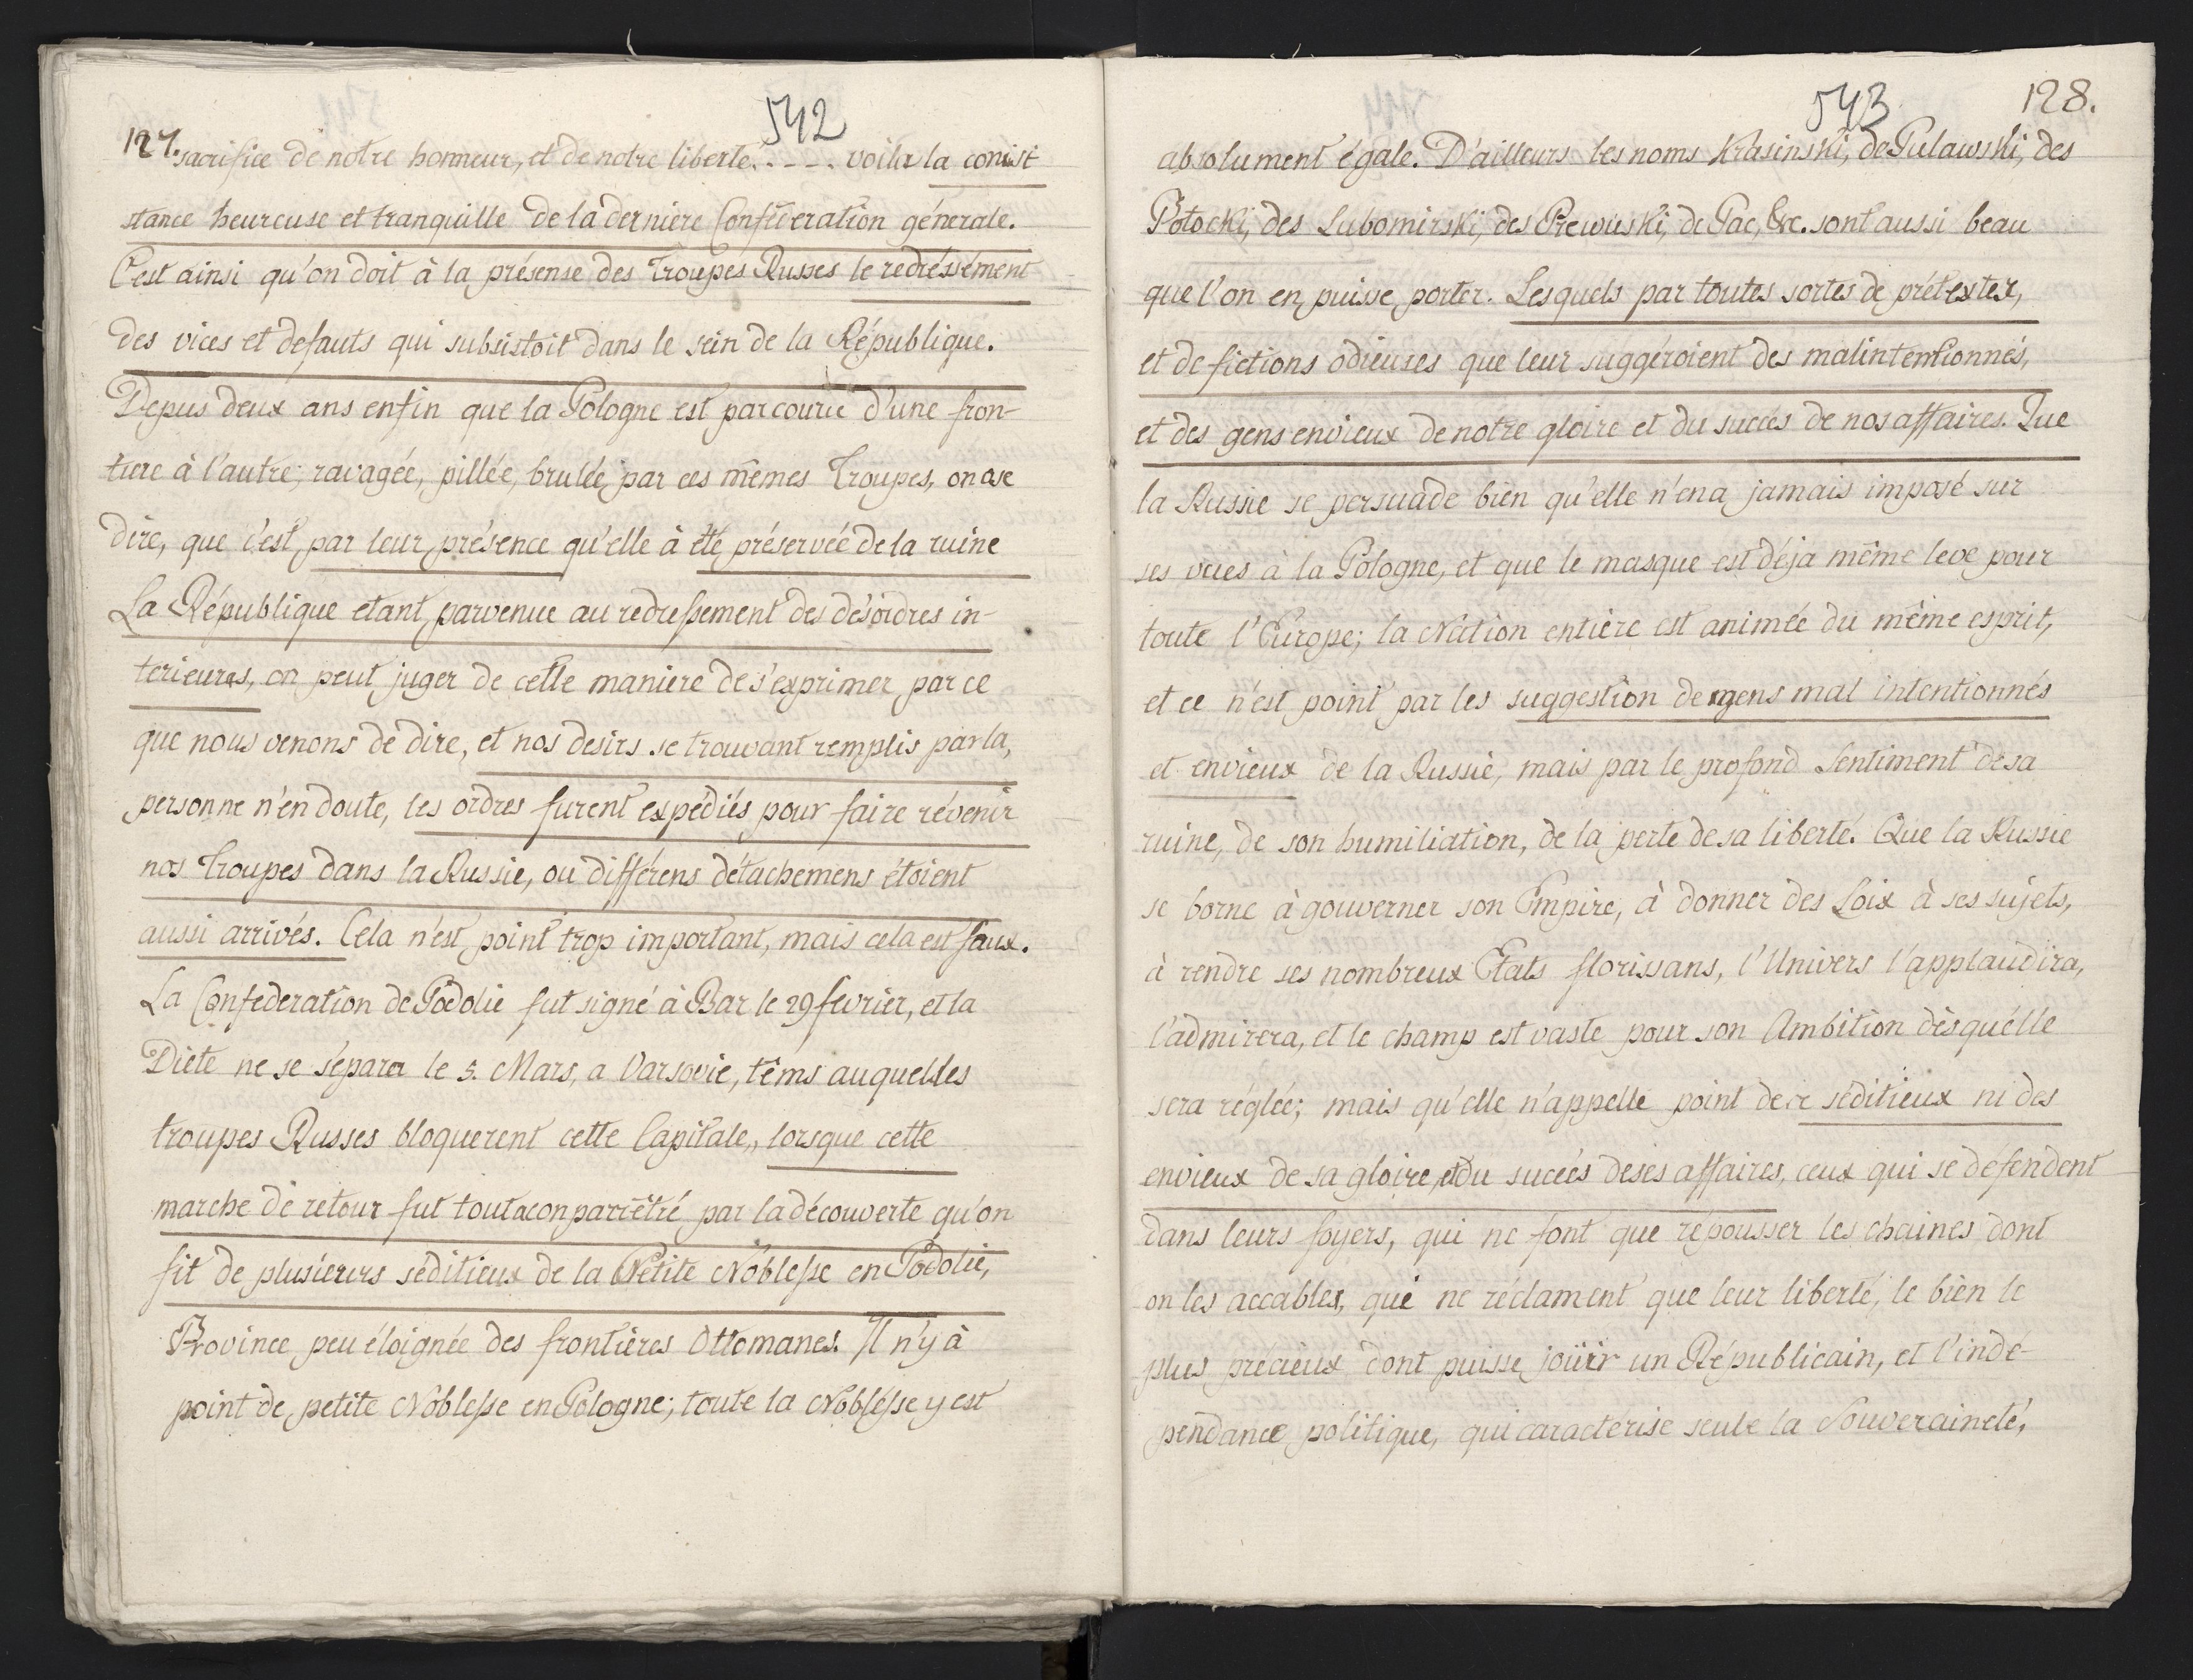 542
127.
sacrifice de notre honneur, et de notre liberté. - - - . voila la consist
stance heureuse et tranquille de la derniere Conféderation génerale.
C'est ainsi qu'on doit à la présense des Troupes Russes le redréssément
des vices et defauts qui subsistoit dans le sein de la République.
Depus deux ans enfin que la Pologne est parcourue d'une fron-
tiere à l'autre; ravagée, pillée, brulée, par ces mêmes Troupes, on ose
dire, que c'est par leur présence qu'elle à été préservée de la ruine
La République etant parvenue au redressement des désordres in-
terieures, on peut juger de cette maniere de s'exprimer par ce
que nous venons de dire, et nos desirs se trouvant remplis par la,
personne n'en doute, les ordres furent expédiés pour faire révenir
nos Troupes dans la Russie, ou différens détachemens étoient
aussi arrivés. Cela n'est point trop important, mais cela est faux.
La Confederation de Podolie fut signé à Bar le 29 fevrier, et la
Diete ne se sépara le 5. Mars, a Varsovie, têms auquel les
troupes Russes bloquerent cette Capitale,, lorsque cette
marche de retour fut tout acoup arrêtré par la découverte qu'on
fit de plusieurs séditieux de la Petite Noblesse en Podolie,
Province peu éloignée des frontières Ottomanes. Il n'y à
point de petite Noblesse en Pologne; toute la Noblesse y est
543
128.
absolument égale. D'ailleurs les noms Krasinski, de Pulawski, des
Potocki, des Lubomirski, des Prewuski, de Pac, &c. sont aussi beau
que l'on en puisse porter. Lesquels par toutes sortes de prétextex,
et de fictions odieuses que leur suggéroient des malintentionnés,
et des gens envieux de notre gloire et du succés de nos affaires. Que
la Russie se persuade bien qu'elle n'en a jamais imposé sur
ses vues à la Pologne, et que le masque est déja même levé pour
toute l'Europe; la Nation entiere est animée du même esprit,
et ce n'est point par les suggestion de gens mal intentionnés
et envieux de la Russie, mais par le profond Sentiment de sa
ruine, de son humiliation, de la perte de sa liberté. Que la Russie
se borne à gouverner son Empire, à donner des Loix à ses sujets,
à rendre ses nombreux Etats florissans, l'Univers l'applaudira,
l'admirera, et le champ est vaste pour son Ambition dès qu'elle
sera réglée; mais qu'elle n'appelle point de séditieux ni des
envieux de sa gloire, et du succés de ses affaires, ceux qui se défendent
dans leurs foyers, qui ne font que répousser les chaines dont
on les accables, qui ne réclament que leur liberté, le bien le
plus précieux dont puisse joüir un Républicain, et l'indé-
pendance politique, qui caractérise seule la Souveraineté,